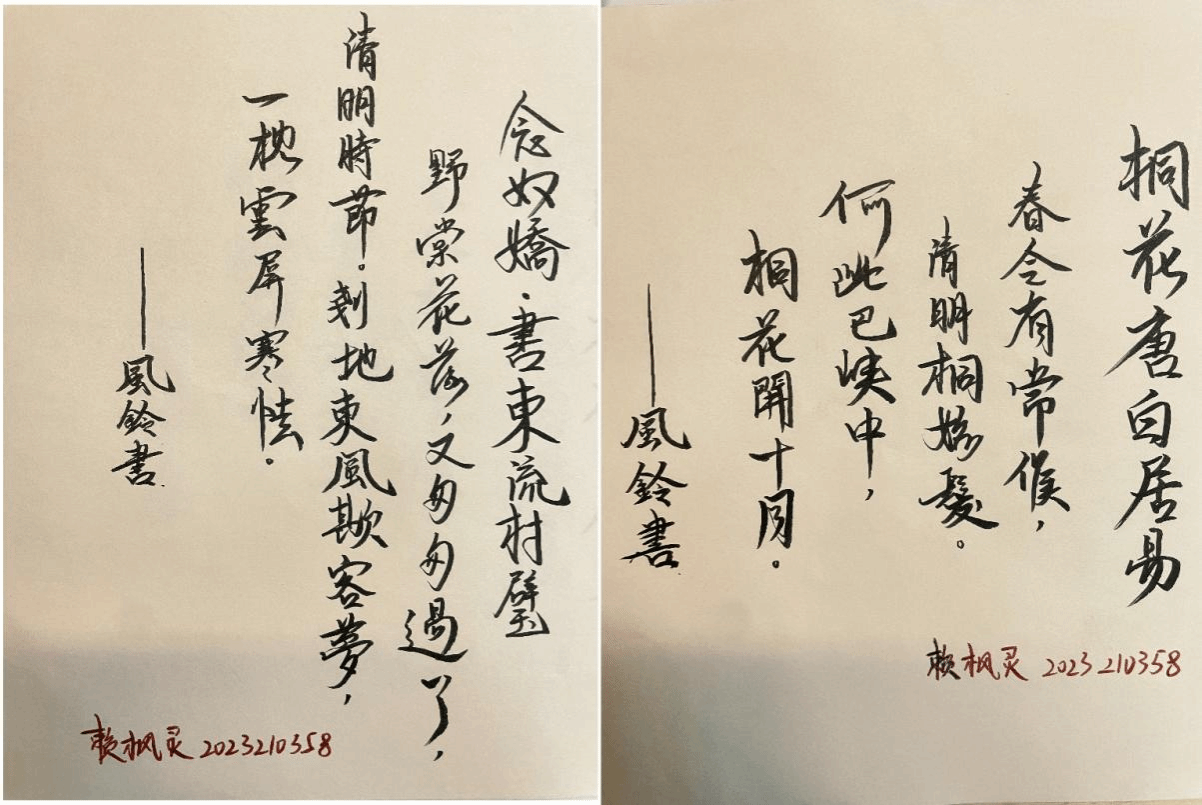 念奴嬌·書東流村璧
野棠花落，又匆匆過了，
清明時節。剗地東風欺客夢，
一枕雲屏寒怯。
——風鈴書
赖枫灵 2023210358
桐花唐白居易
春令有常候，
清明桐始髮。
何此巴峽中，
桐花開十月。
——風鈴書
赖枫灵 2023210358